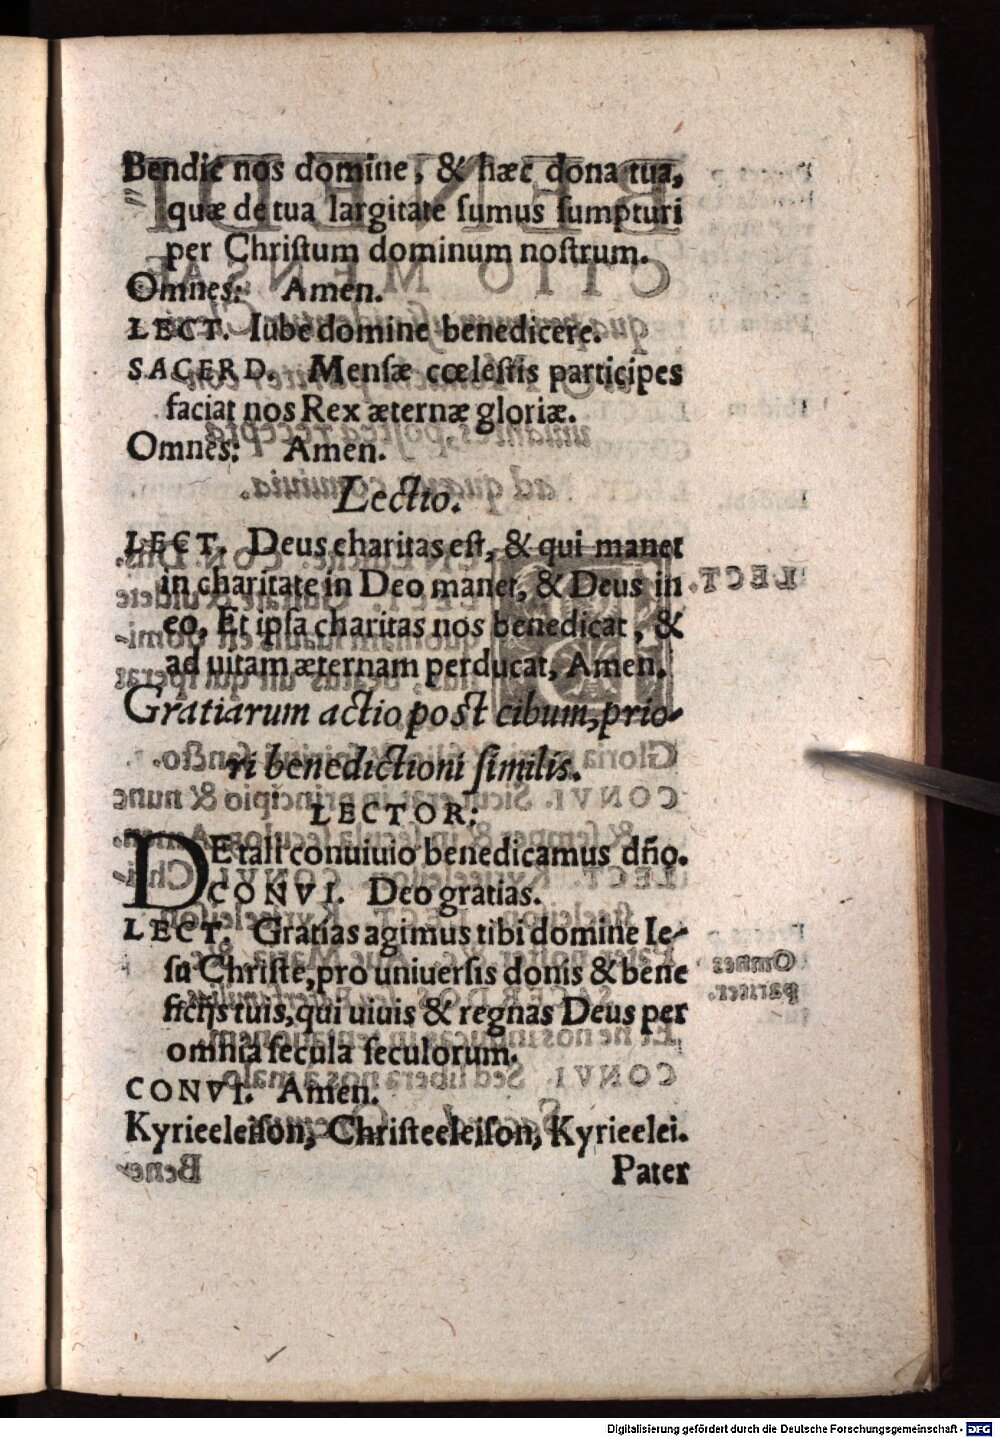 Bendic nos domine, & hæc dona tua,
quæ de tua largitate ſumus ſumpturi
per Chriſtum dominum noſtrum.
Omnes: Amen.
LECT. Iube domine benedicere.
SACERD. Menſæ cœleſtis participes
faciat nos Rex æternæ gloriæ.
Omnes: Amen.
Lectio.
LECT. Deus charitas eſt, & qui manet
in charitate in Deo manet, & Deus in
eo, Et ipſa charitas nos benedicat, &
ad uitam æternam perducat, Amen.
Gratiarum actio poſt cibum, prio-
ri benedictioni ſimilis.
LECTOR:
DE tali conuiuio benedicamus dño.
CONVI. Deo gratias.
LECT. Gratias agimus tibi domine Ie-
ſu Chriſte, pro uniuerſis donis & bene
ficijs tuis, qui uiuis & regnas Deus per
omnia ſecula ſeculorum.
CONVI. Amen.
Kyrieeleiſon, Chriſteeleiſon, Kyrieelei.
Pater
Digitalisierung gefördert durch die Deutsche Forschungsgemeinschaft - DFG